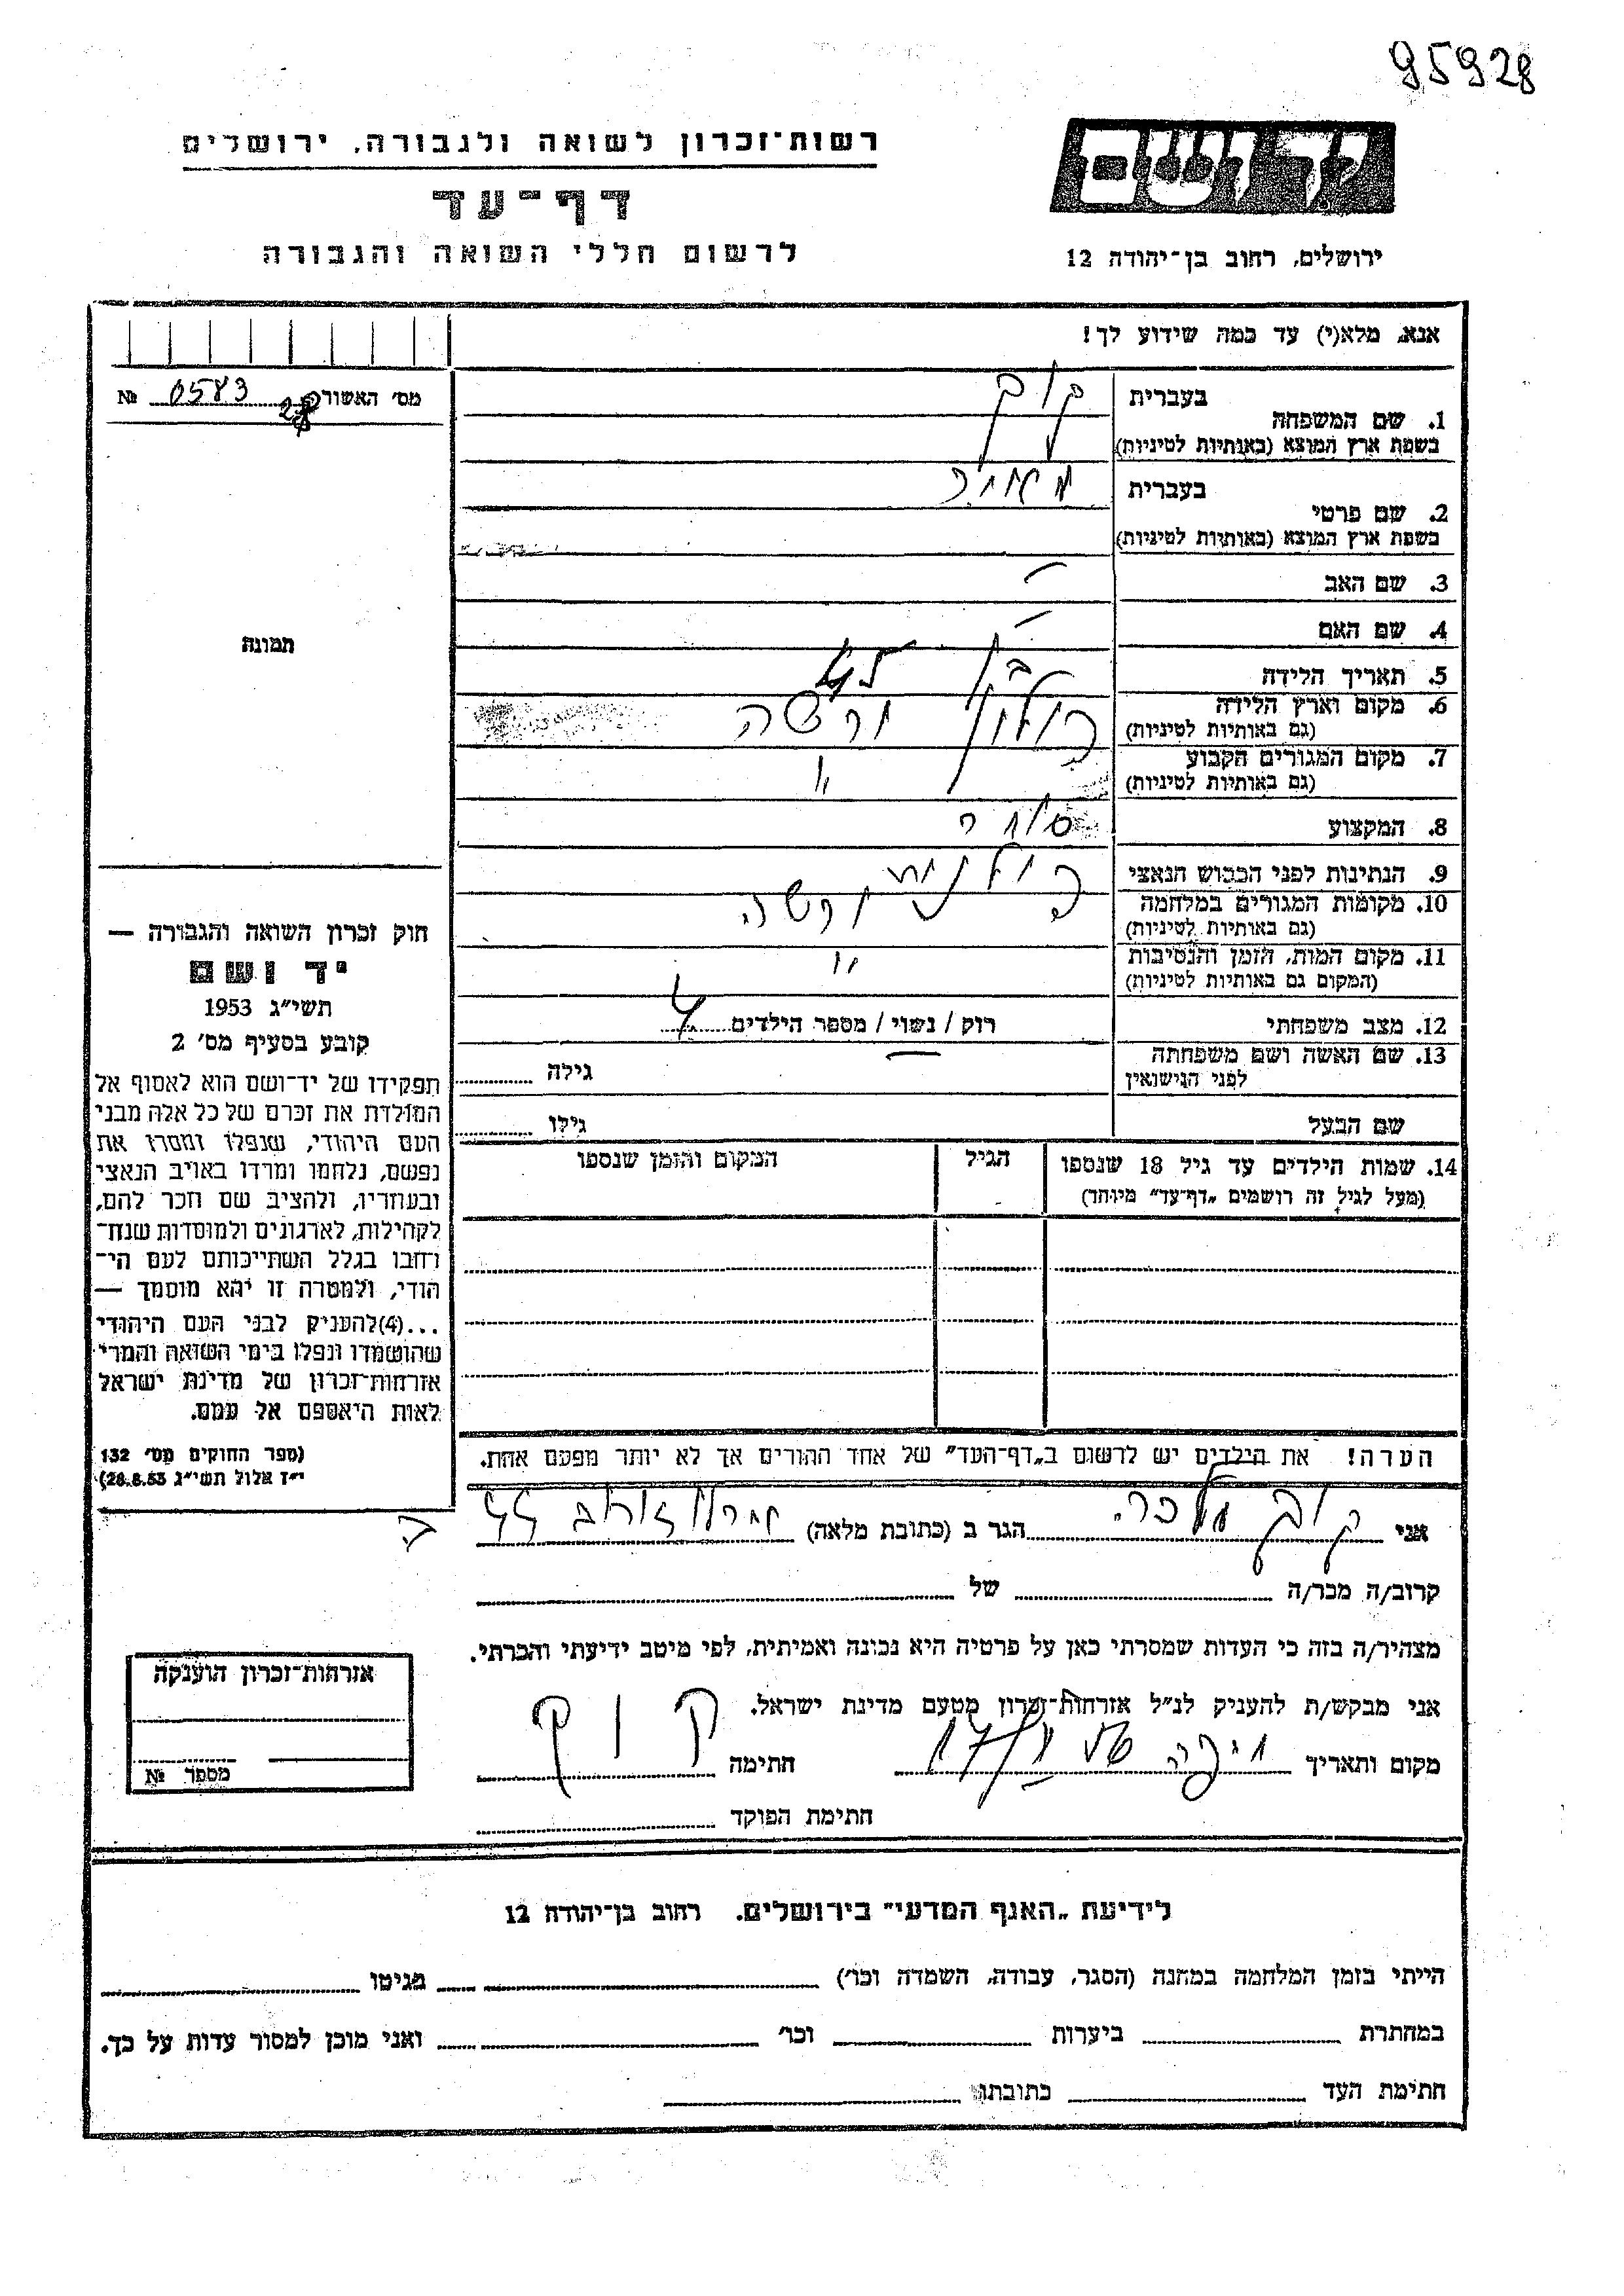 95928
רשות־זכרון לשואה ולגבורה, ירושלים
דף־עד
לרשום חללי השואה והגבורה
יד ושם
ירושלים, רחוב בן־יהודה 12
אנא, מלא(י) עד כמה שידוע לך!
מס׳ האשורה № 0583
תמונה
1. שם המשפחה בעברית
בשפת ארץ המוצא (באותיות לטיניות)
2. שם פרטי בעברית מאיר
בשפת ארץ המוצא (באותיות לטיניות)
3. שם האב –
4. שם האם –
5. תאריך הלידה בן 45
6. מקום וארץ הלידה פולין ורשה
(גם באותיות לטיניות)
7. מקום המגורים הקבוע "
(גם באותיות לטיניות)
8. המקצוע סוחר
9. הנתינות לפני הכבוש הנאצי פולנית
10. מקומות המגורים במלחמה ורשה
(גם באותיות לטיניות)
11. מקום המות, הזמן והנסיבות "
(המקום גם באותיות לטיניות)
12. מצב משפחתי רוק / נשוי / מספר הילדים 4
13. שם האשה ושם משפחתה — גילה
לפני הנישואין
שם הבעל גילו
14. שמות הילדים עד גיל 18 שנספו הגיל המקום והזמן שנספו
(מעל לגיל זה רושמים „דף־עד” מיוחד)
חוק זכרון השואה והגבורה —
יד ושם
תשי״ג 1953
קובע בסעיף מס׳ 2
תפקידו של יד־ושם הוא לאסוף אל
המולדת את זכרם של כל אלה מבני
העם היהודי, שנפלו ומסרו את
נפשם, נלחמו ומרדו באויב הנאצי
ובעוזריו, ולהציב שם וזכר להם,
לקהילות, לארגונים ולמוסדות שנח־
רחבו בגלל השתייכותם לעם הי־
הודי, ולמטרה זו יהא מוסמך —
...(4)להעניק לבני העם היהודי
שהושמדו ונפלו בימי השואה והמרי
אזרחות־זכרון של מדינת ישראל
לאות היאספם אל עמם.
(ספר החוקים מס׳ 132
י״ז אלול תשי״ג 28.8.53)
הערה! את הילדים יש לרשום ב„דף־העד” של אחד ההורים אך לא יותר מפעם אחת.
אני מלכה הגר ב (כתובת מלאה) 44
קרוב/ה מכר/ה של
מצהיר/ה בזה כי העדות שמסרתי כאן על פרטיה היא נכונה ואמיתית, לפי מיטב ידיעתי והכרתי.
אני מבקש/ת להעניק לנ״ל אזרחות־זכרון מטעם מדינת ישראל.
מקום ותאריך חיפה חתימה
חתימת הפוקד
אזרחות־זכרון הוענקה
מספר №
לידיעת „האגף המדעי” בירושלים, רחוב בן־יהודה 12
הייתי בזמן המלחמה במחנה (הסגר, עבודה, השמדה וכו׳) בגיטו
במחתרת ביערות וכו׳ ואני מוכן למסור עדות על כך.
חתימת העד כתובתו